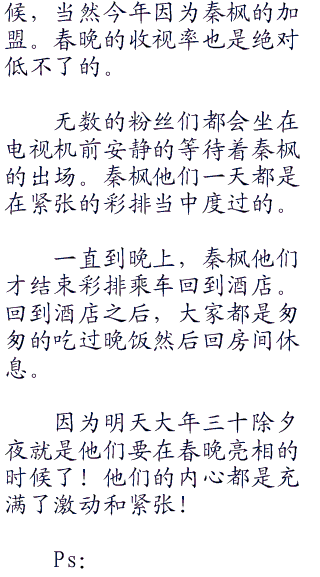 候，当然今年因为秦枫的加
盟。春晚的收视率也是绝对
低不了的。
无数的粉丝们都会坐在
电视机前安静的等待着秦枫
的出场。秦枫他们一天都是
在紧张的彩排当中度过的。
一直到晚上，秦枫他们
才结束彩排乘车回到酒店。
回到酒店之后，大家都是匆
匆的吃过晚饭然后回房间休
息。
因为明天大年三十除夕
夜就是他们要在春晚亮相的
时候了！他们的内心都是充
满了激动和紧张！
Ps: